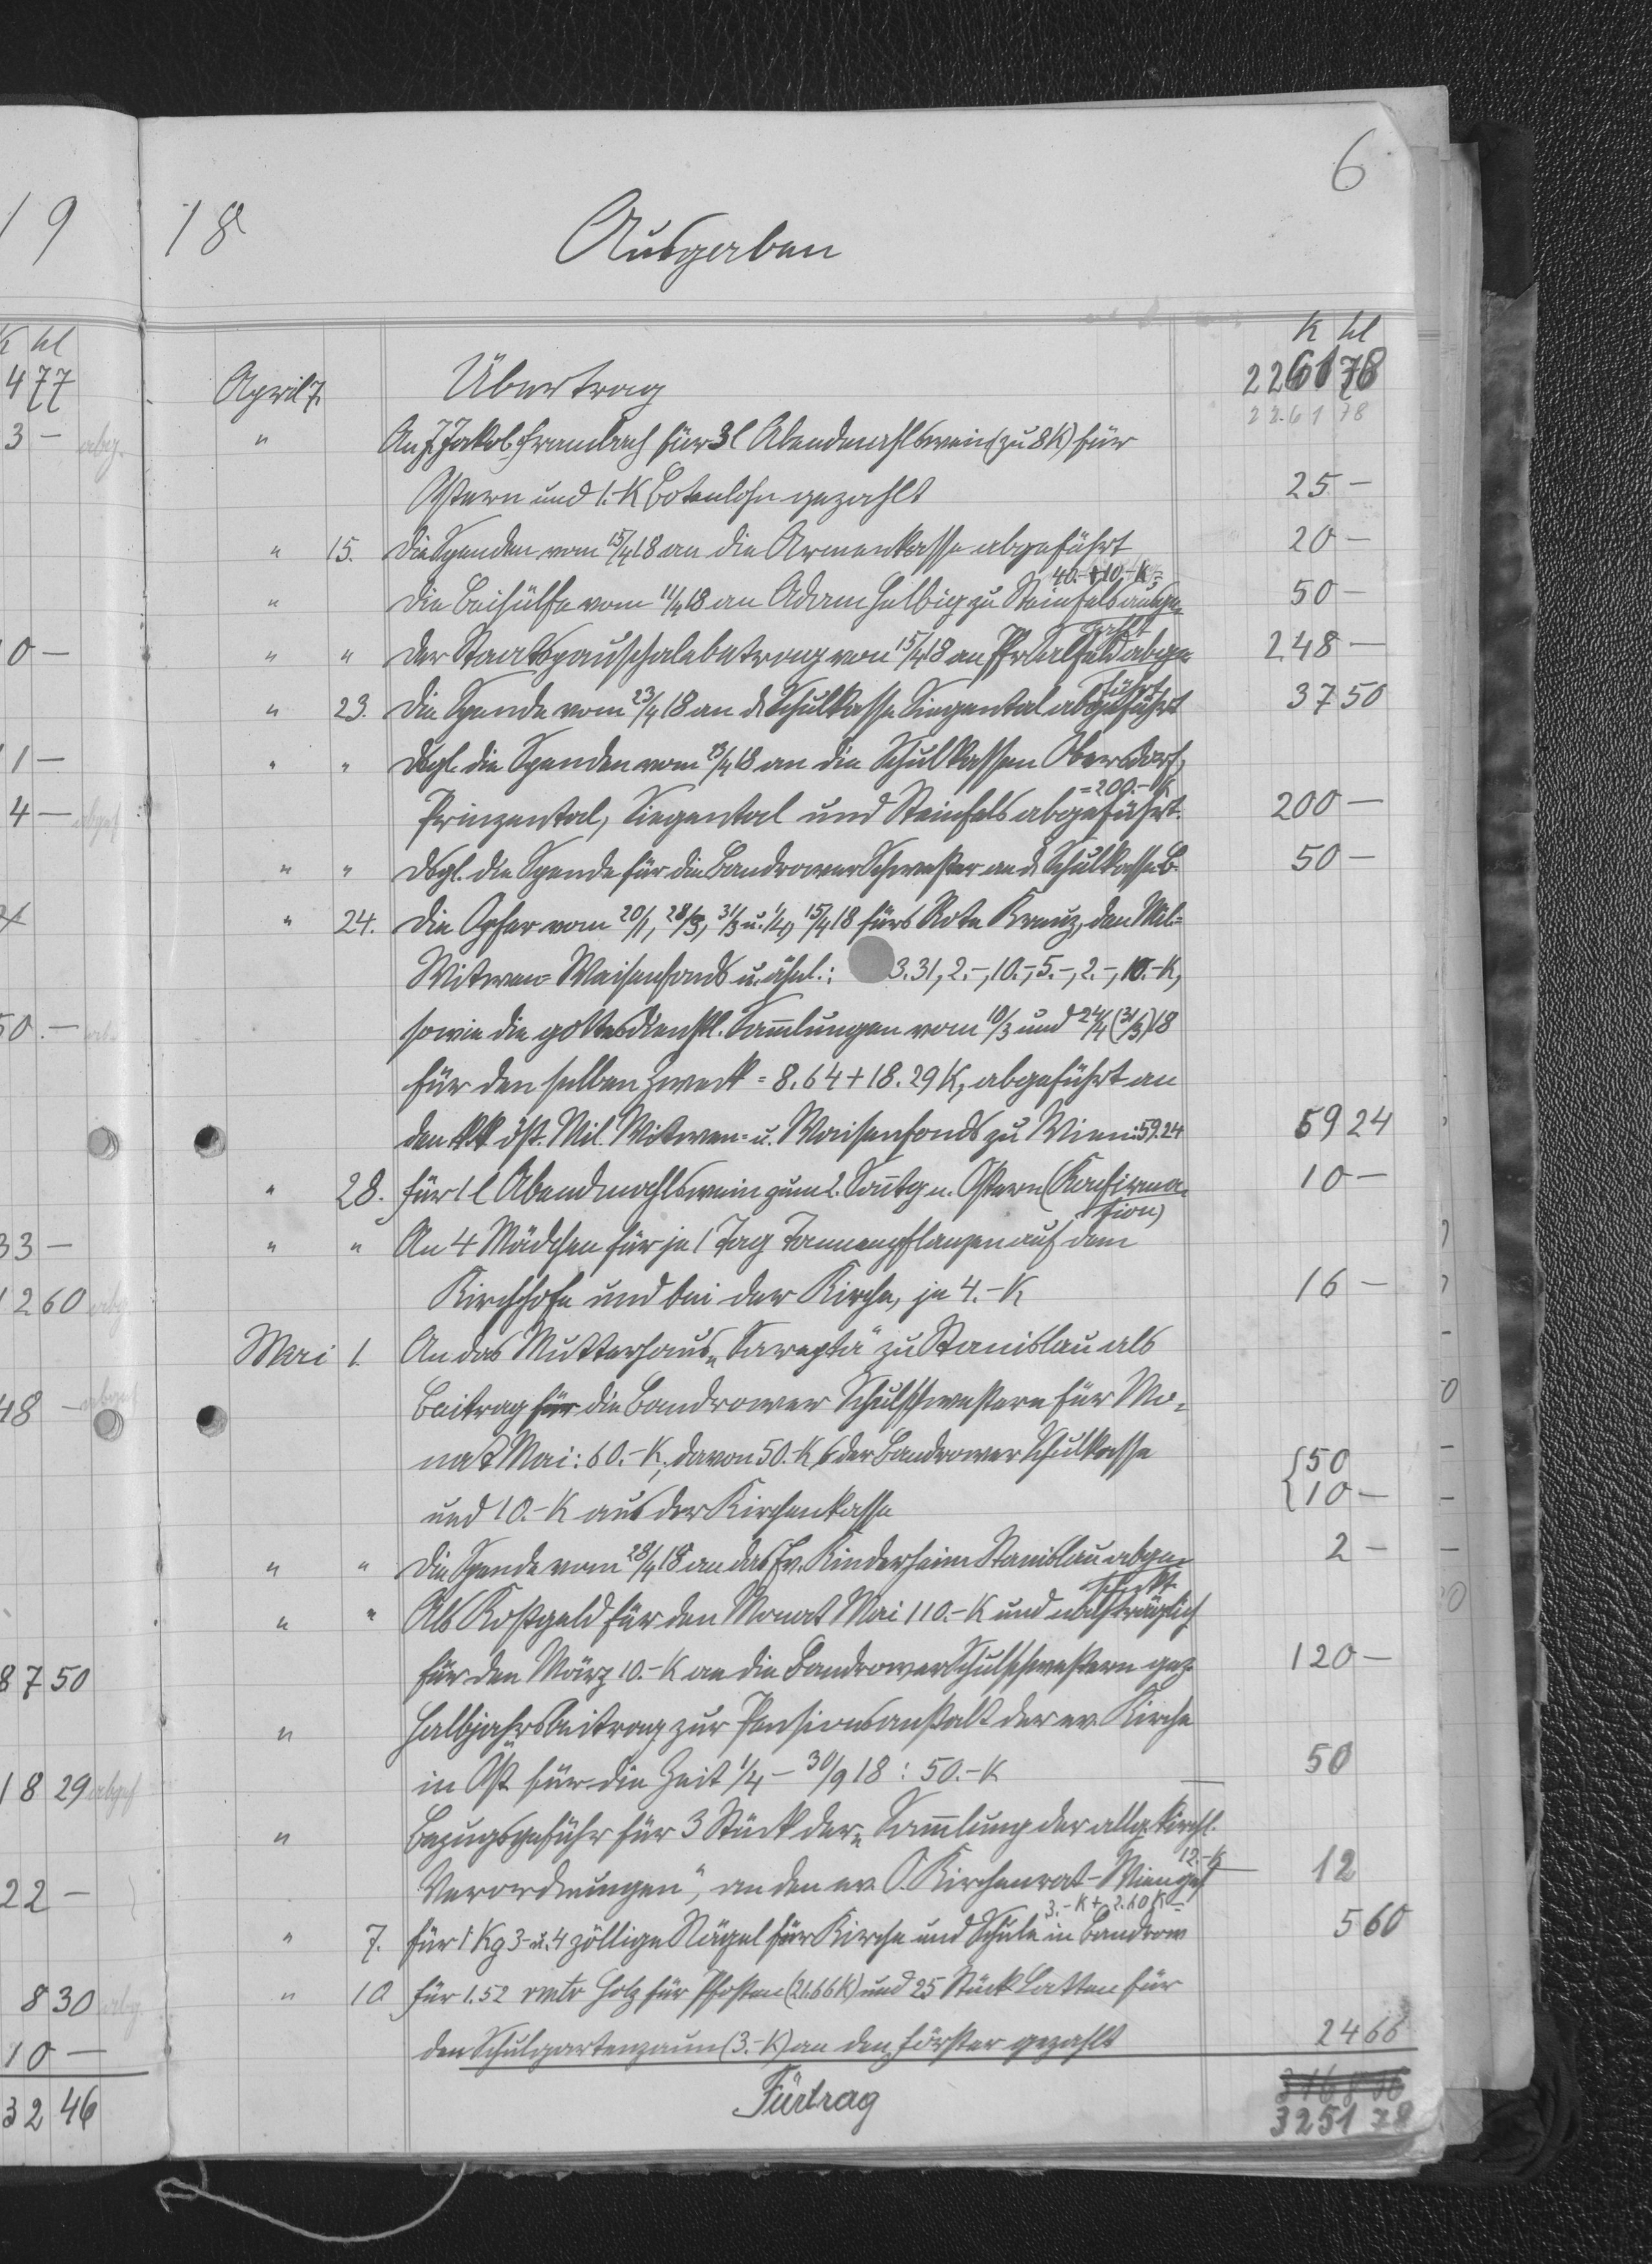 6
19 18 Ausgaben
K hl
K hl
477
April 7. Übertrag 2261 78
2261 78
3 - abg.
" An J. Jakob Frambach für 3 l Abendmahlswein (zu 8 K) für
Ostern und 1.- K Botenlohn gezahlt 25 -
" 15. Die Spenden vom 15/4 18 an die Armenkasse abgeführt 20 -
40.- + 10.- K =
" Die Beihülfe vom 11/4 18 an Adam Helbig zu Steinfels ausge- 50 -
zahlt
0 -
" " Der Staatspauschalebetrag von 15/4 18 an Pfr abge- 248 -
führt
" 23. Die Spende vom 23/4 18 an d. Schulkasse Siegental abgeführt 37 50
1 -
" " Dsgl. die Spenden vom 23/4 18 an die Schulkassen Obersdorf,
= 200.- K
4 - abgef
Prinzental, Siegental und Steinfels abgeführt. 200 -
" " Dsgl. die Spende für die Bandrower Schwester an d. Schulkasse B. 50 -
" 24. Die Opfer vom 20/1, 28/3, 31/3 u. 1/4, 15/4 18 fürs Rote Kreuz, den Mil-
Witwen- Waisenfonds u. ähnl.: 3.31, 2.-, 10.-, 5.-, 2.-, 10.- K,
50.-
sowie die gottesdienstl. Sammlungen vom 10/3 und 24/4 (31/3) 18
für den selben Zweck = 8.64 + 18.29 K, abgeführt an
den k.k. öst. Mil. Witwen- u. Waisenfonds zu Wien: 59.24 59 24
" 28. Für 1 l Abendmahlswein zum 1. Sonntg n. Ostern (Konfirma- 10 -
tion)
33 -
" " An 4 Mädchen für je 1 Tag Tannenpflanzen auf dem
1260 abg
Kirchhofe und bei der Kirche, je 4.- K 16 -
Mai 1. An das Mutterhaus „Sarepta" zu Stanislau als
48 - abgef
Beitrag für die Bandrower Schulschwestern für Mo-
nat Mai: 60.- K; davon 50.- K der Bandrower Schulkasse { 50
und 10.- K aus der Kirchenkasse { 10 -
" " Die Spende vom 28/4 18 an das Ev. Kinderheim Stanislau abge- 2 -
schickt
" " Als Kostgeld für den Monat Mai 110.- K und nachträglich
8750
für den März 10.- K an die Bandrower Schulschwestern gez. 120 -
" Halbjahrsbeitrag zur Pensionsanstalt der ev. Kirche
18 29 abgef
in Öst. für die Zeit 1/4 - 30/9 18 : 50.- K 50
" Bezugsgebühr für 3 Stück der „Sammlung der allg. kirchl.
12.- K
22 -
Verordnungen", an den ev. O. Kirchenrat-Wien gez. 12
3.- K + 2.60 K =
" 7. Für 1 Kg 3- u. 4 zöllige Nägel für Kirche und Schule in Bandrow 5 60
830 abg
" 10 Für 1.52 rmtr Holz für Pfosten (21.66 K) und 25 Stück Latten für
10 -
den Schulgartenzaun (3.- K) an den Förster gezahlt 24 66
32 46
Fürtrag 3251 78